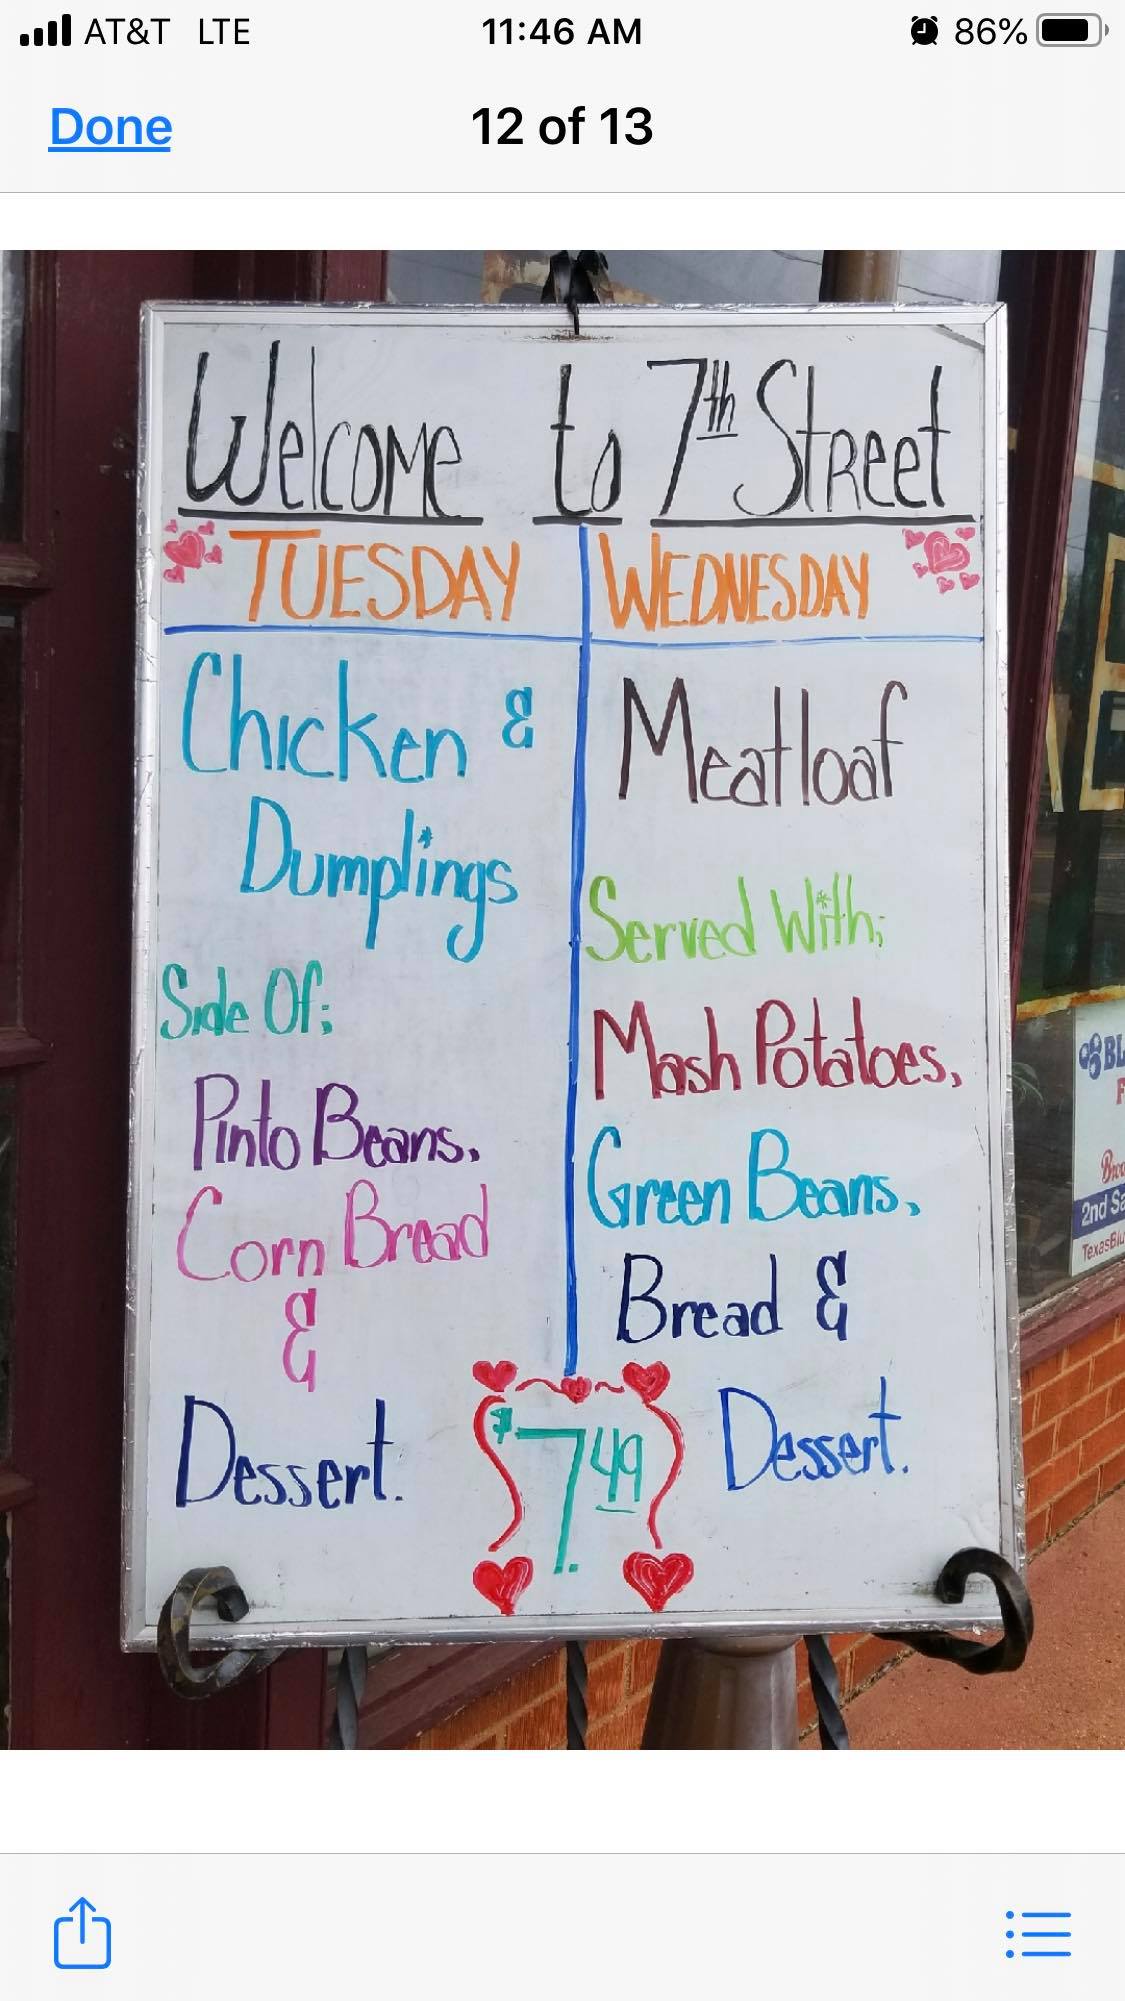 AT&T LTE 11:46 AM 86%
Done 12 of 13
Welcome to 7th Street
TUESDAY
Chicken &
Dumplings
Side Of;
Pinto Beans,
Corn Bread
&
Dessert.
WEDNESDAY
Meatloaf
Served With;
Mash Potatoes,
Green Beans,
Bread &
Dessert.
$7.49
BL
F
2nd Sa
TexasBlu